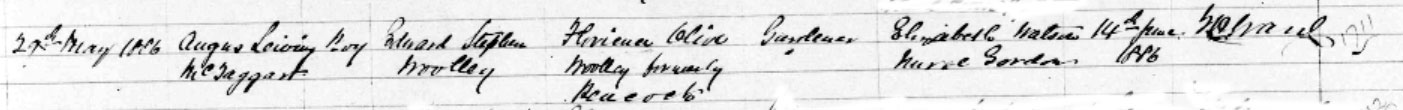 29th May 1886 Angus Leiving Boy Edward Stephen Floriener Olive Gardener Elizabeth Watson 14th June
McTaggart Woolley Woolley formerly Nurse Gordon 1886
Peacock